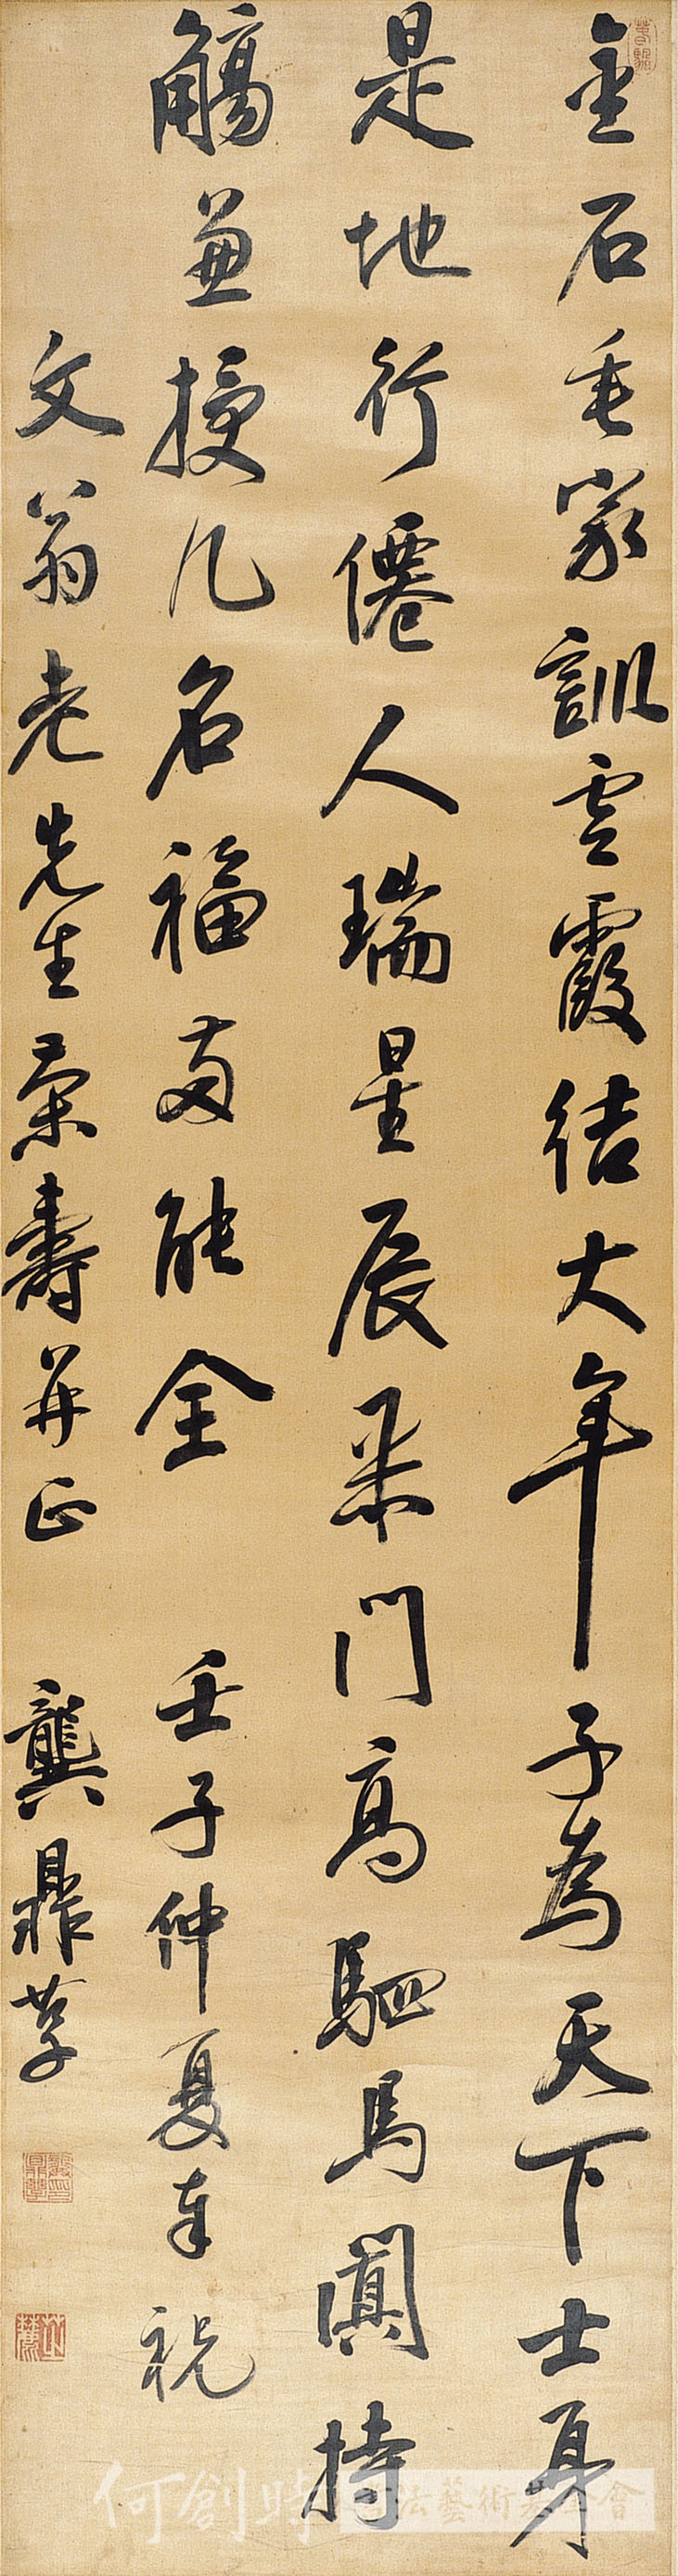 金石垂家訓雲霞結大年子為天下士身
是地行僊人瑞星辰采門高駟馬闐持
觴兼授几名福兩能全　壬子仲夏奉祝
文翁老先生榮壽并正　龔鼎孳
何創時書法藝術基金會